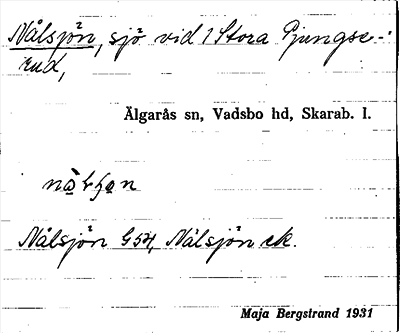 Nålsjön, sjö vid 1 Stora Ljungse-
rud,
Älgarås sn, Vadsbo hd, Skarab. l.
Nålsjön G54, Nålsjön ek.
Maja Bergstrand 1931